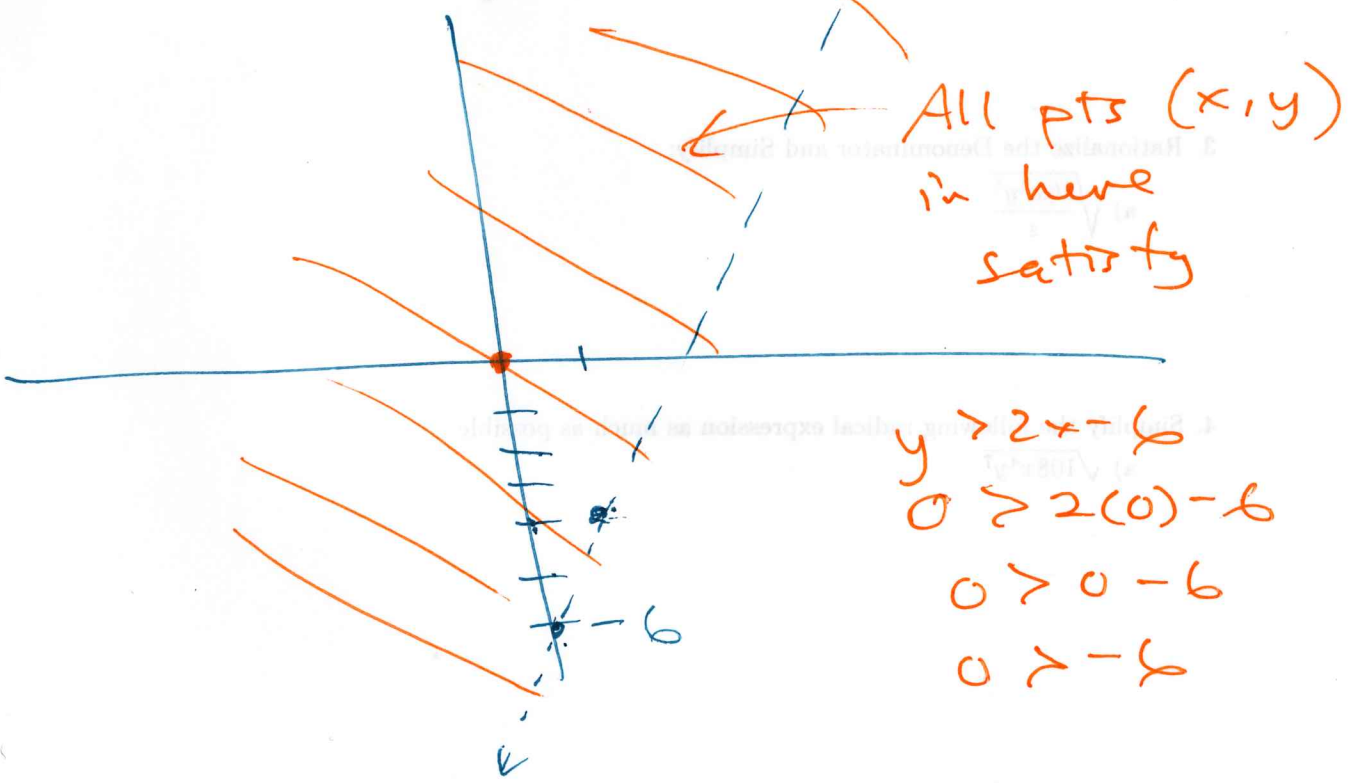 All pts (x, y)
in here
satisfy
y > 2x - 6
0 > 2(0) - 6
0 > 0 - 6
0 > -6
-6